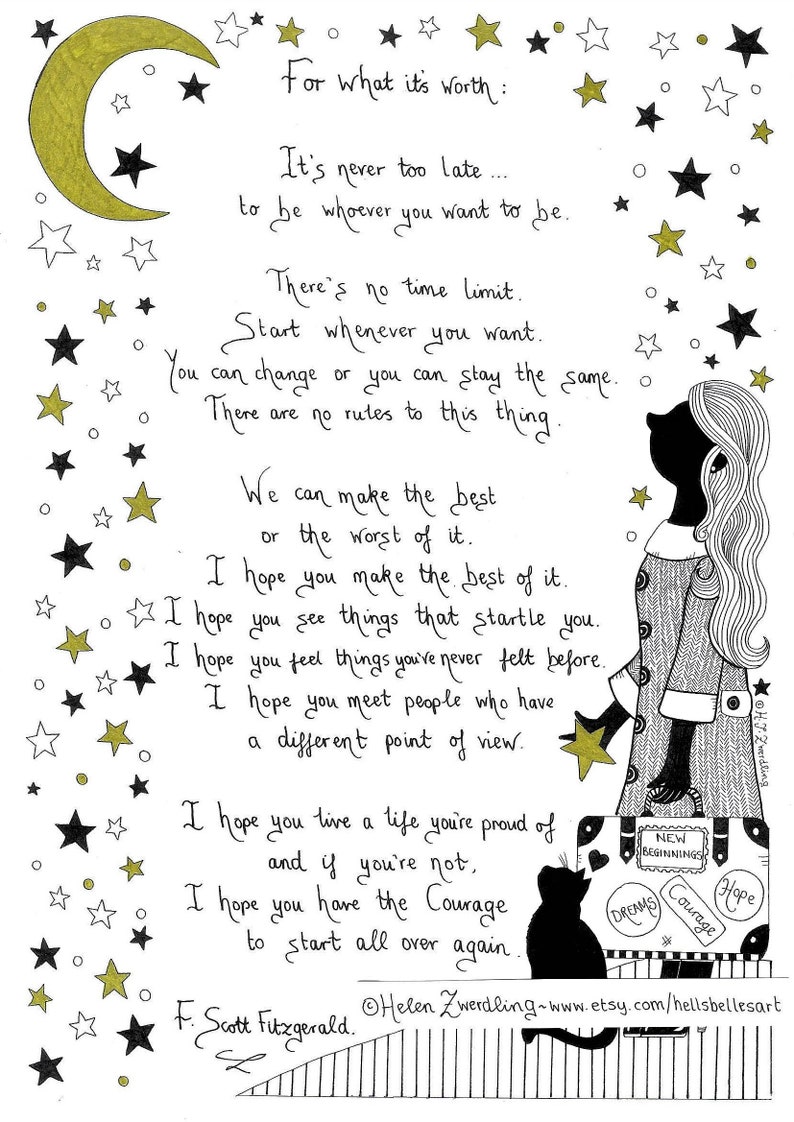 For what it's worth :
It's never too late ...
to be whoever you want to be.
There's no time limit.
Start whenever you want.
You can change or you can stay the same.
There are no rules to this thing.
We can make the best
or the worst of it.
I hope you make the best of it.
I hope you see things that startle you.
I hope you feel things you've never felt before.
I hope you meet people who have
a different point of view.
I hope you live a life you're proud of
and if you're not,
I hope you have the Courage
to start all over again.
F. Scott Fitzgerald.
© H.J Zwerdling
NEW
BEGINNINGS
DREAMS
Courage
Hope
©Helen Zwerdling~www.etsy.com/hellsbellesart